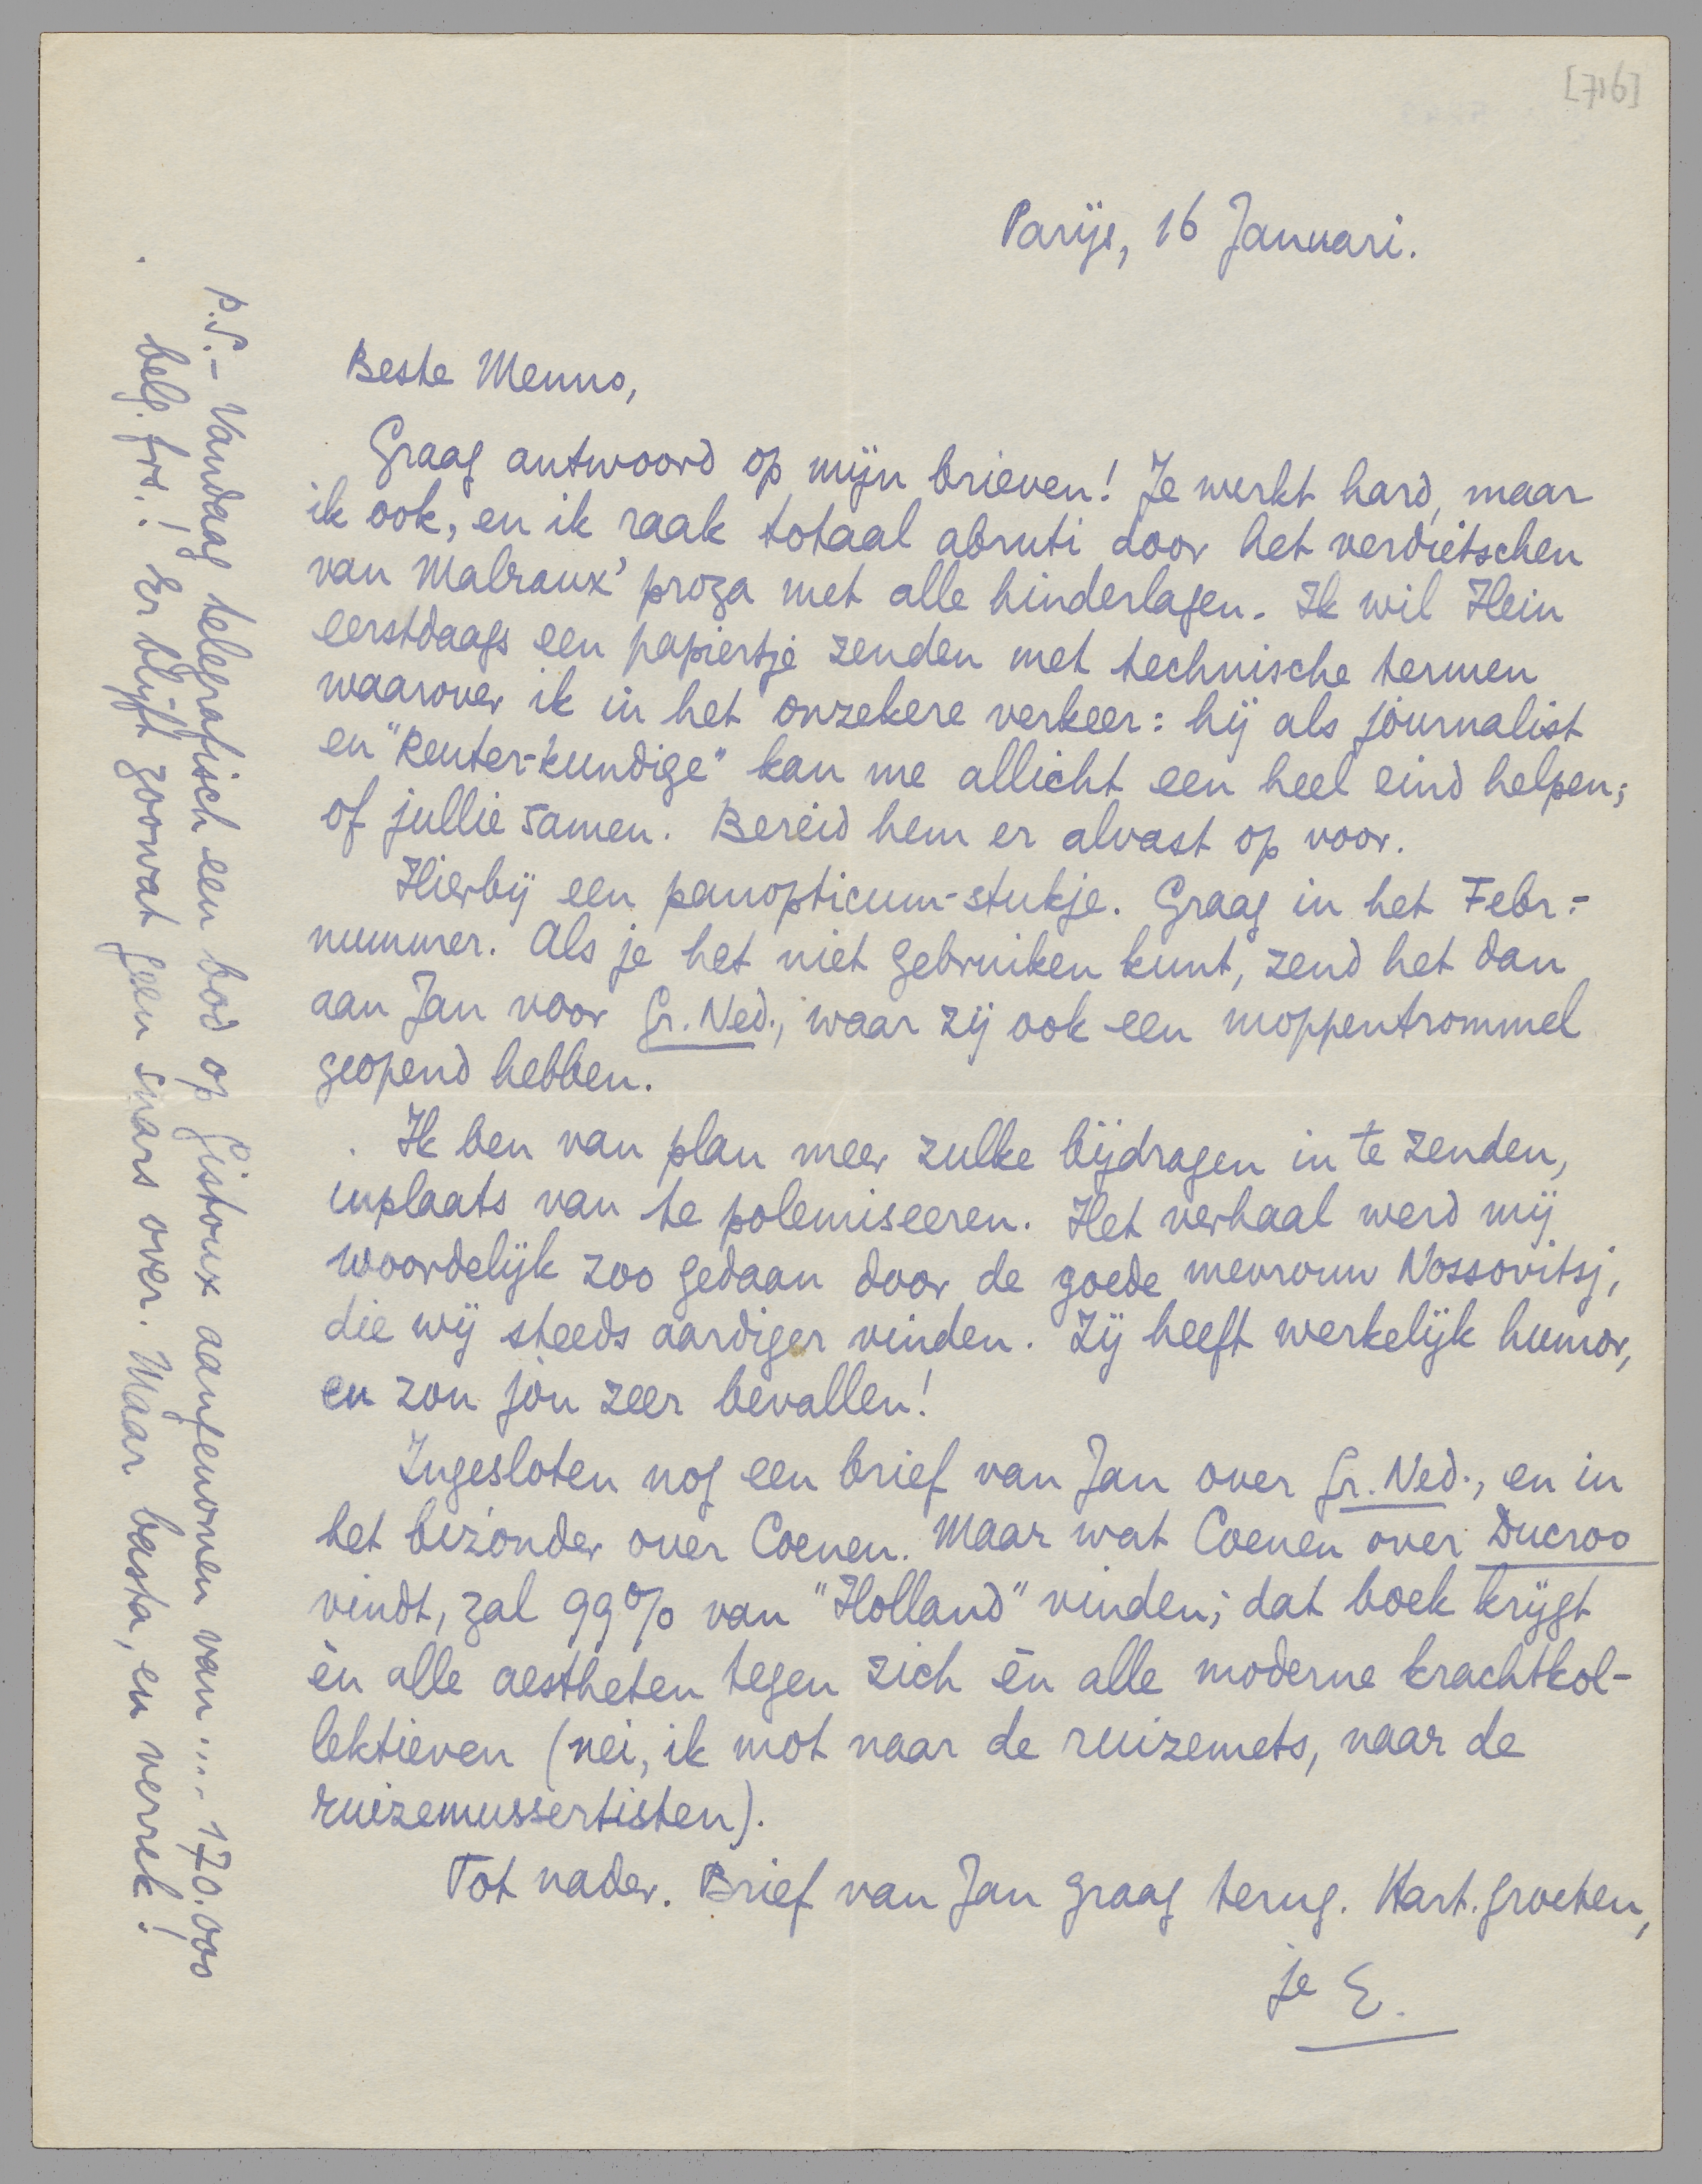 [716]
Parijs, 16 Januari.
Beste Menno,
Graag antwoord op mijn brieven! Je werkt hard, maar
ik ook, en ik raak totaal abruti door het verdietschen
van Malraux' proza met alle hinderlagen. Ik wil Hein
eerstdaags een papiertje zenden met technische termen
waarover ik in het onzekere verkeer: hij als journalist
en "Reuter-kundige" kan me allicht een heel eind helpen;
of jullie samen. Bereid hem er alvast op voor.
Hierbij een panopticum-stukje. Graag in het Febr.-
nummer. Als je het niet gebruiken kunt, zend het dan
aan Jan voor Gr. Ned., waar zij ook een moppentrommel
geopend hebben.
Ik ben van plan meer zulke bijdragen in te zenden,
inplaats van te polemiseeren. Het verhaal werd mij
woordelijk zoo gedaan door de goede mevrouw Nossovitsj,
die wij steeds aardiger vinden. Zij heeft werkelijk humor,
en zou jóu zeer bevallen!
Ingesloten nog een brief van Jan over Gr. Ned., en in
het bizonder over Coenen. Maar wat Coenen over Ducroo
vindt, zal 99% van "Holland" vinden; dat boek krijgt
èn alle aestheten tegen zich èn alle moderne krachtkol-
lektieven (nei, ik mot naar de ruizemets, naar de
ruizemussertisten).
Tot nader. Brief van Jan graag terug. Hart. groeten,
je E.
P.S. - Vandaag telegrafisch een bod op Gistoux aangenomen van.... 170.000
belg. frs.! Er blijft zoowat geen snars over. Maar basta, en verrek!